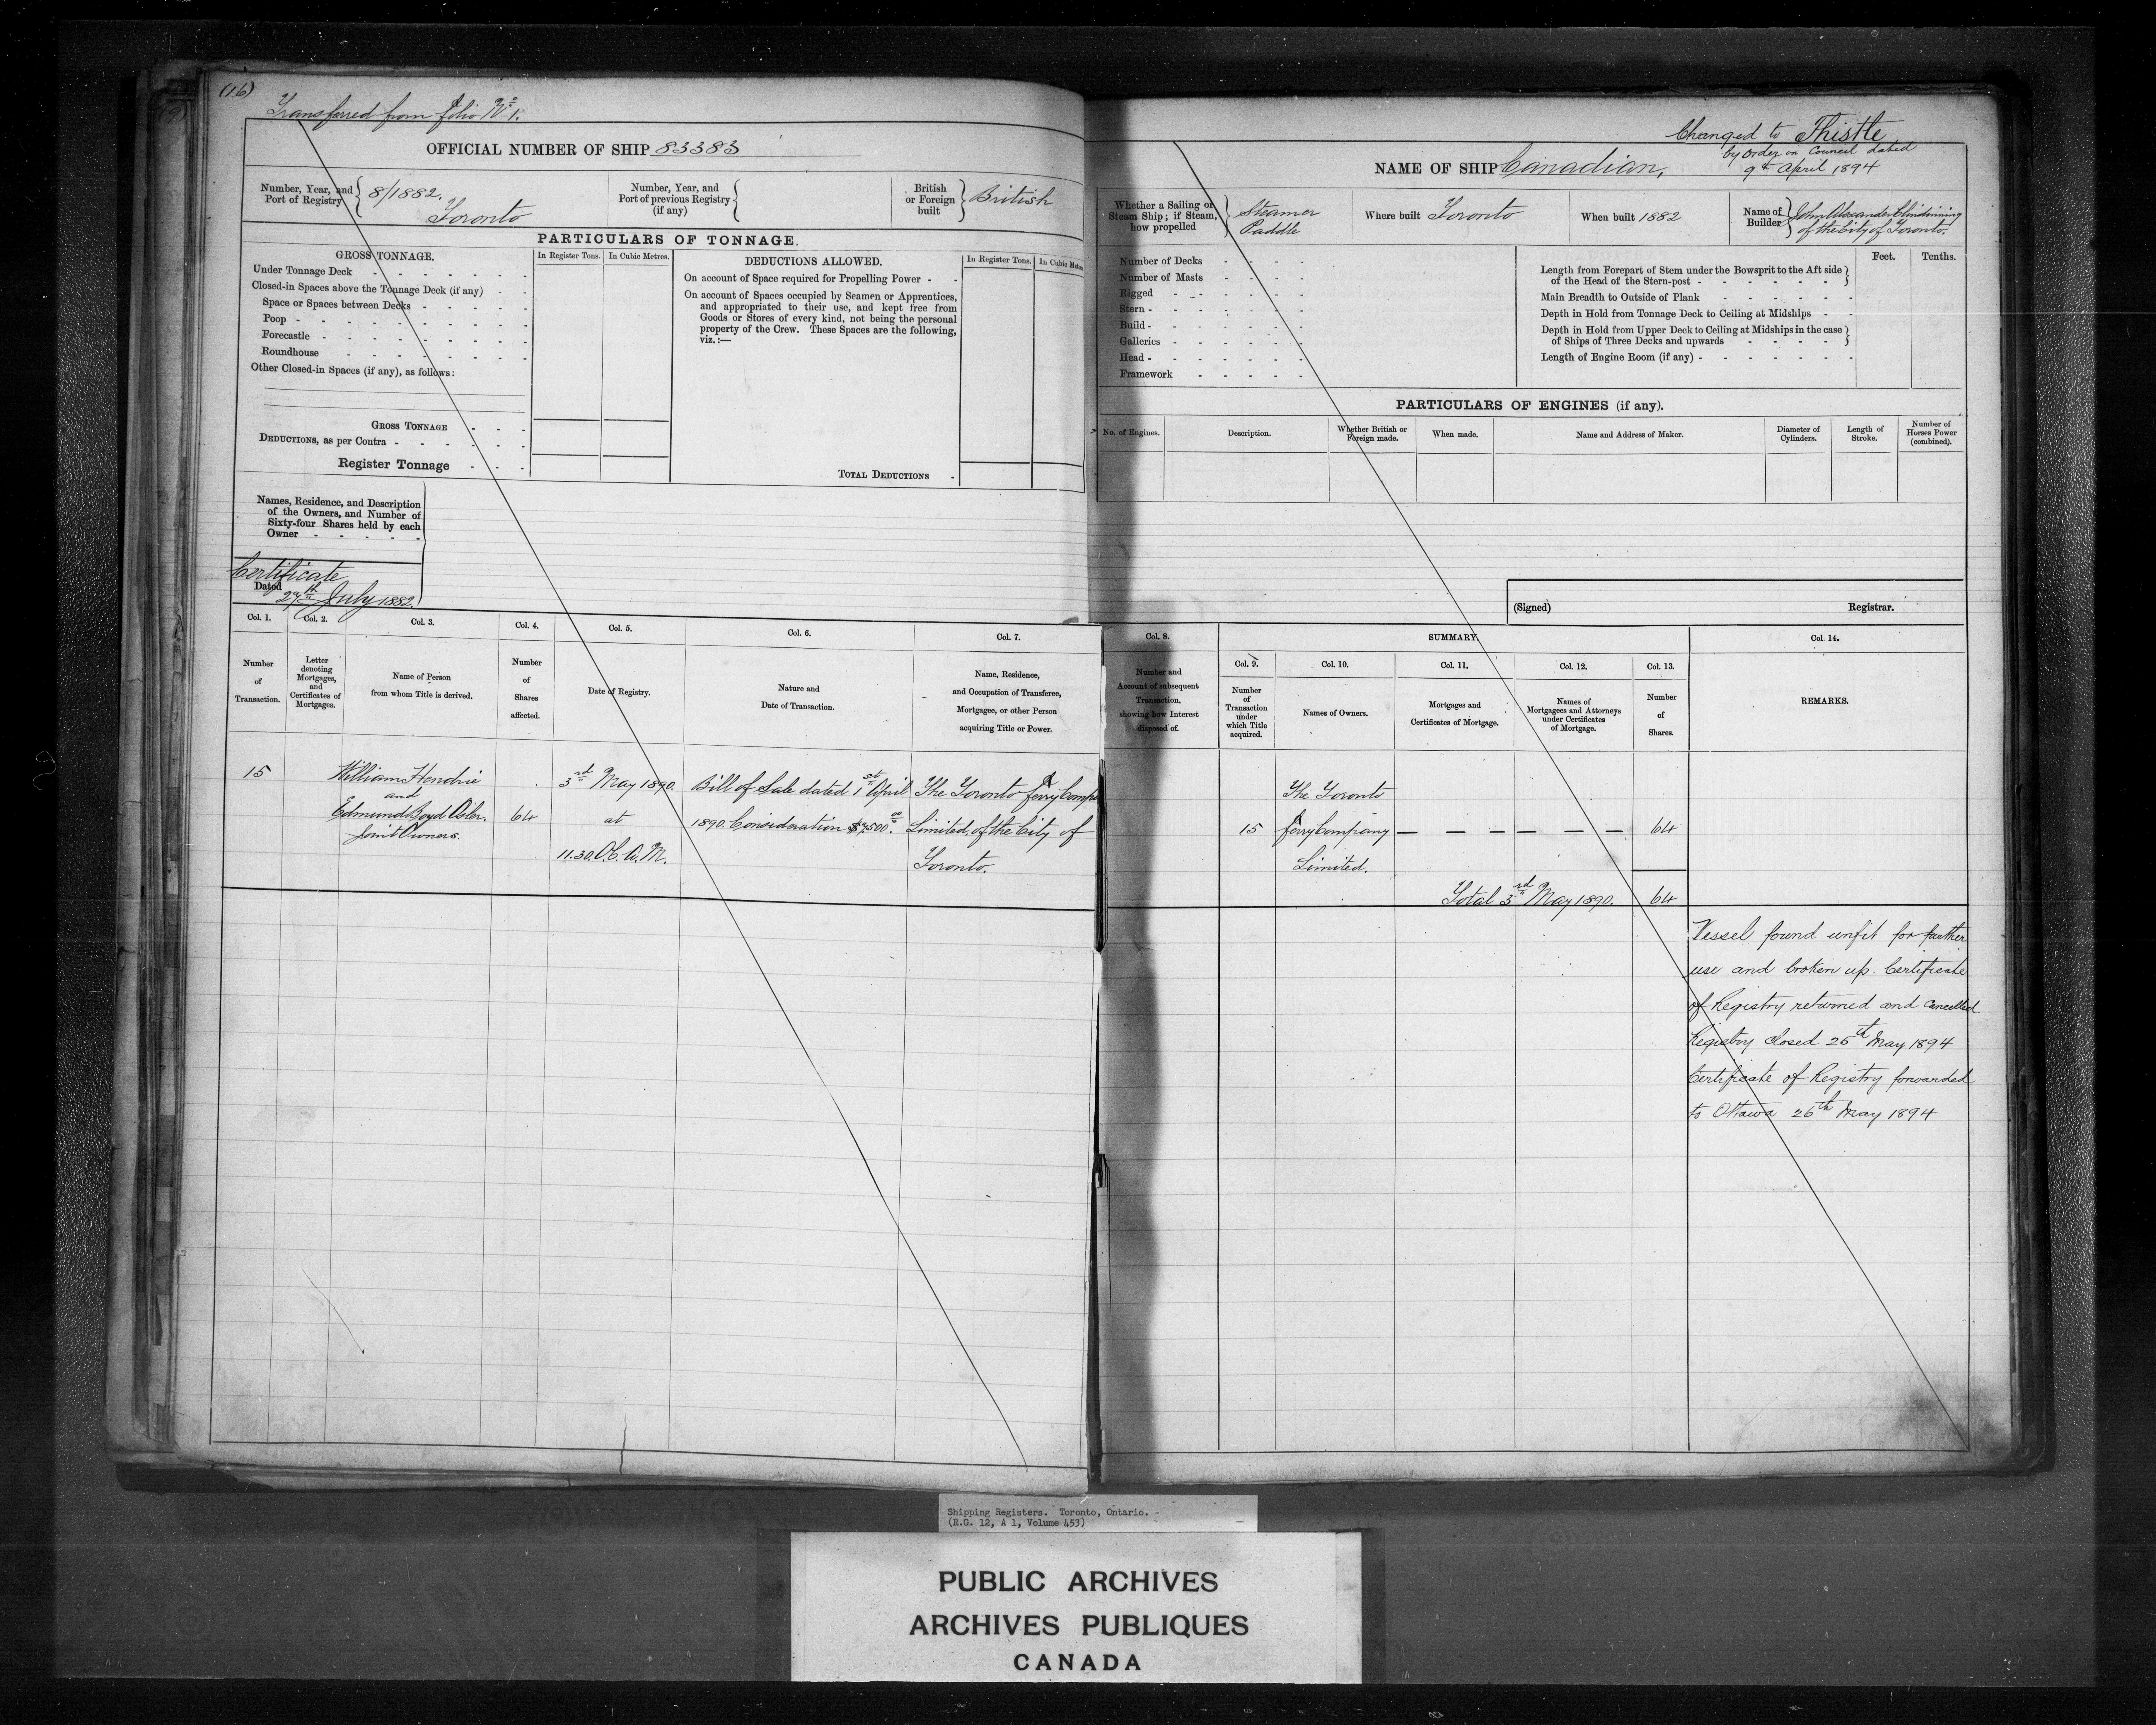 (16)
Transferred from folio No 1.
OFFICIAL NUMBER OF SHIP 83383
Number, Year, and
Port of Registry
8/1882.
Toronto
Number, Year, and
Port of previous Registry
(if any)
British
or Foreign
built
British
PARTICULARS OF TONNAGE.
GROSS TONNAGE.
In Register Tons.
In Cubic Metres.
Under Tonnage Deck
Closed-in Spaces above the Tonnage Deck (if any)
Space or Spaces between Decks
Poop
Forecastle
Roundhouse
Other Closed-in Spaces (if any), as follows:
GROSS TONNAGE
DEDUCTIONS, as per Contra
Register Tonnage
DEDUCTIONS ALLOWED.
In Register Tons.
In Cubic Metres
On account of Space required for Propelling Power
On account of Spaces occupied by Seamen or Apprentices,
and appropriated to their use, and kept free from
Goods or Stores of every kind, not being the personal
property of the Crew. These Spaces are the following,
viz.:—
TOTAL DEDUCTIONS
Names, Residence, and Description
of the Owners, and Number of
Sixty-four Shares held by each
Owner
Certificate
Dated
27th July 1882.
Col. 1.
Number
of
Transaction.
Col. 2.
Letter
denoting
Mortgages,
and
Certificates of
Mortgages.
Col. 3.
Name of Person
from whom Title is derived.
Col. 4.
Number
of
Shares
affected.
Col. 5.
Date of Registry.
Col. 6.
Nature and
Date of Transaction.
Col. 7.
Name, Residence,
and Occupation of Transferee,
Mortgagee, or other Person
acquiring Title or Power.
15
William Hendrie
and
Edmund Boyd Osler.
Joint Owners.
64
3rd May 1890.
at
11.30. O.C. A.M.
Bill of Sale dated 1st April
1890. Consideration
The Toronto Ferry Comp
Limited, of the City of
Toronto.
Changed to Thistle
by Order in Council dated
9th April 1894
NAME OF SHIP Canadian,
Whether a Sailing or
Steam Ship; if Steam,
how propelled
Steamer
Paddle
Where built Toronto
When built 1882
Name of
Builder
John Alexander Clindinning
of the City of Toronto.
Number of Decks
Number of Masts
Rigged
Stern
Build
Galleries
Head
Framework
Feet.
Tenths.
Length from Forepart of Stem under the Bowsprit to the Aft side
of the Head of the Stern-post
Main Breadth to Outside of Plank
Depth in Hold from Tonnage Deck to Ceiling at Midships
Depth in Hold from Upper Deck to Ceiling at Midships in the case
of Ships of Three Decks and upwards
Length of Engine Room (if any)
PARTICULARS OF ENGINES (if any).
No. of Engines.
Description.
Whether British or
Foreign made.
When made.
Name and Address of Maker.
Diameter of
Cylinders.
Length of
Stroke.
Number of
Horses Power
(combined).
(Signed)
Registrar.
Col. 8.
Number and
Account of subsequent
Transaction,
showing how Interest
disposed of.
SUMMARY.
Col. 9.
Number
of
Transaction
under
which Title
acquired.
Col. 10.
Names of Owners.
Col. 11.
Mortgages and
Certificates of Mortgage.
Col. 12.
Names of
Mortgagees and Attorneys
under Certificates
of Mortgage.
Col. 13.
Number
of
Shares.
Col. 14.
REMARKS.
15
The Toronto
Ferry Company
Limited.
64
Total 3rd May 1890. 64
Vessel found unfit for further
use and broken up. Certificate
of Registry returned and cancelled
Registry closed 26th May 1894
Certificate of Registry forwarded
to Ottawa 26th May 1894
Shipping Registers. Toronto, Ontario.
(R.G. 12, A 1, Volume 453)
PUBLIC ARCHIVES
ARCHIVES PUBLIQUES
CANADA